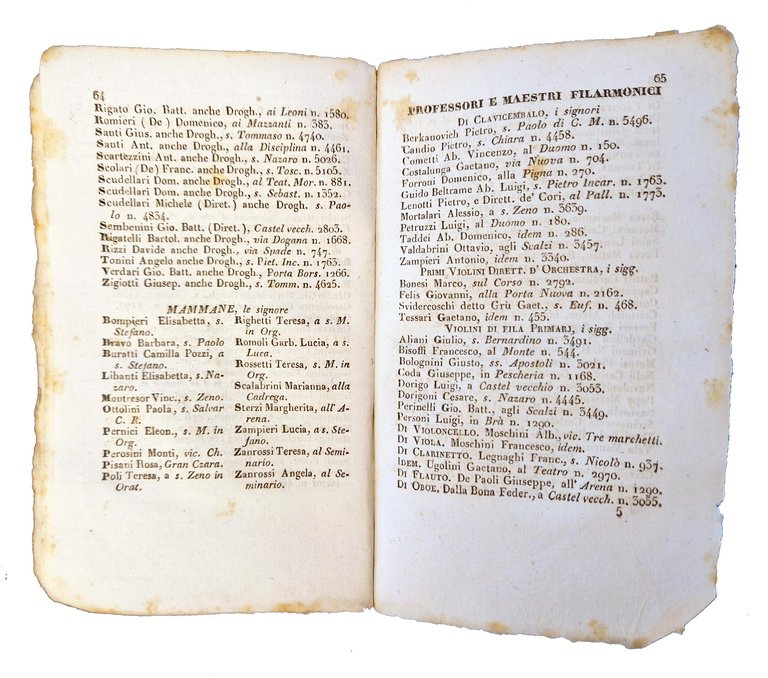 64
Rigato Gio. Batt. anche Drogh., ai Leoni n. 1580.
Romieri (De) Domenico, ai Mazzanti n. 383.
Santi Gius. anche Drogh., s. Tommaso n. 4740.
Santi Ant. anche Drogh., alla Disciplina n. 4461.
Scartezzini Ant. anche Drogh., s. Nazaro n. 5026.
Scolari (De) Franc. anche Drogh., s. Tosc. n. 5105.
Scudellari Dom. anche Drogh., al Teat. Mor. n. 881.
Scudellari Dom. anche Drogh., s. Sebast. n. 1352.
Scudellari Michele (Diret.) anche Drogh. s. Pao-
lo n. 4834.
Sembenini Gio. Batt. (Diret.), Castel vecch. 2803.
Rigatelli Bartol. anche Drogh., via Dogana n. 1668.
Rizzi Davide anche Drogh., via Spade n. 747.
Tonini Angelo anche Drogh., s. Piet. Inc. n. 1763.
Verdari Gio. Batt. anche Drogh., Porta Bors. 1266.
Zigiotti Giusep. anche Drogh., s. Tomm. n. 4625.
MAMMANE, le signore
Bompieri Elisabetta, s.
Stefano.
Bravo Barbara, s. Paolo
Buratti Camilla Pozzi, a
s. Stefano.
Libanti Elisabetta, s. Na-
zaro.
Montresor Vinc., s. Zeno.
Ottolini Paola, s. Salvar
C. R.
Pernici Eleon., s. M. in
Org.
Perosini Monti, vic. Ch.
Pisani Rosa, Gran Czara.
Poli Teresa, a s. Zeno in
Orat.
Righetti Teresa, a s. M.
in Org.
Romoli Garb. Lucia, a s.
Luca.
Rossetti Teresa, s. M. in
Org.
Scalabrini Marianna, alla
Cadrega.
Sterzi Margherita, all' A-
rena.
Zampieri Lucia, a s. Ste-
fano.
Zanrossi Teresa, al Semi-
nario.
Zanrossi Angela, al Se-
minario.
65
PROFESSORI E MAESTRI FILARMONICI
DI CLAVICEMBALO, i signori
Berkanovich Pietro, s. Paolo di C. M. n. 5496.
Candio Pietro, s. Chiara n. 4458.
Cometti Ab. Vincenzo, al Duomo n. 150.
Costalunga Gaetano, via Nuova n. 704.
Forroni Domenico, alla Pigna n. 270.
Guido Beltrame Ab. Luigi, s. Pietro Incar. n. 1763.
Lenotti Pietro, e Dirett. de' Cori, al Pall. n. 1773.
Mortalari Alessio, a s. Zeno n. 3639.
Petruzzi Luigi, al Duomo n. 180.
Taddei Ab. Domenico, idem n. 286.
Valdabrini Ottavio, agli Scalzi n. 3457.
Zampieri Antonio, idem n. 3340.
PRIMI VIOLINI DIRETT. D' ORCHESTRA, i sigg.
Bonesi Marco, sul Corso n. 2792.
Felis Giovanni, alla Porta Nuova n. 2162.
Svidercoschi detto Grü Gaet., s. Euf. n. 468.
Tessari Gaetano, idem n. 455.
VIOLINI DI FILA PRIMARJ, i sigg.
Aliani Giulio, s. Bernardino n. 3491.
Bisoffi Francesco, al Monte n. 544.
Bolognini Giusto, ss. Apostoli n. 3021.
Coda Giuseppe, in Pescheria n. 1168.
Dorigo Luigi, a Castel vecchio n. 3053.
Dorigoni Cesare, s. Nazaro n. 4445.
Perinelli Gio. Batt., agli Scalzi n. 3449.
Personi Luigi, in Brà n. 1290.
DI VIOLONCELLO. Moschini Alb., vic. Tre marchetti.
DI VIOLA. Moschini Francesco, idem.
DI CLARINETTO. Legnaghi Franc., s. Nicolò n. 937.
IDEM. Ugolini Gaetano, al Teatro n. 2970.
DI FLAUTO. De Paoli Giuseppe, all' Arena n. 1290.
DI OBOE, Dalla Bona Feder., a Castel vecch. n. 3055.
5